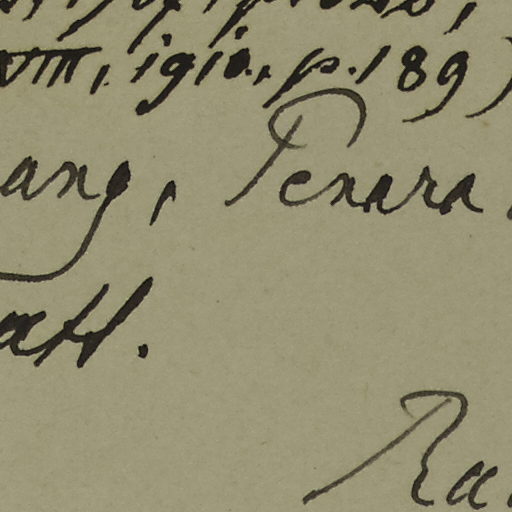 VIII, 1910., p. 189)
ang, Tenara
att.
Ra